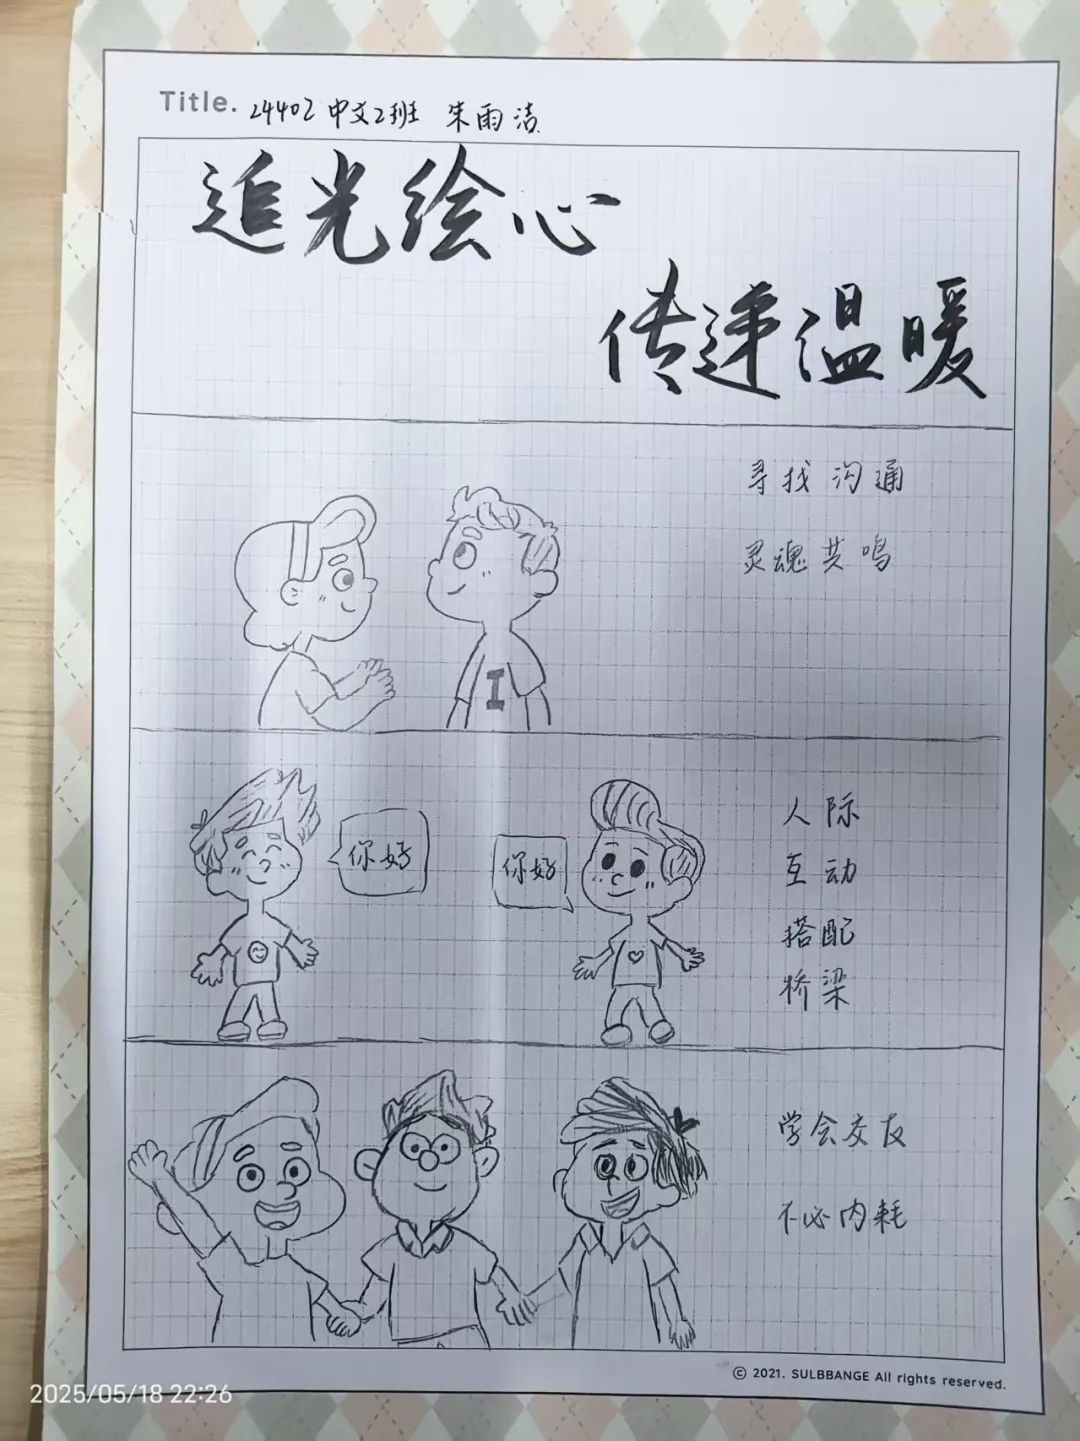 Title. 24402 中文2班 朱雨洁
追光绘心
传递温暖
寻找沟通
灵魂共鸣
你好
你好
人际
互动
搭配
桥梁
学会交友
不必内耗
© 2021. SULBBANGE All rights reserved.
2025/05/18 22:26